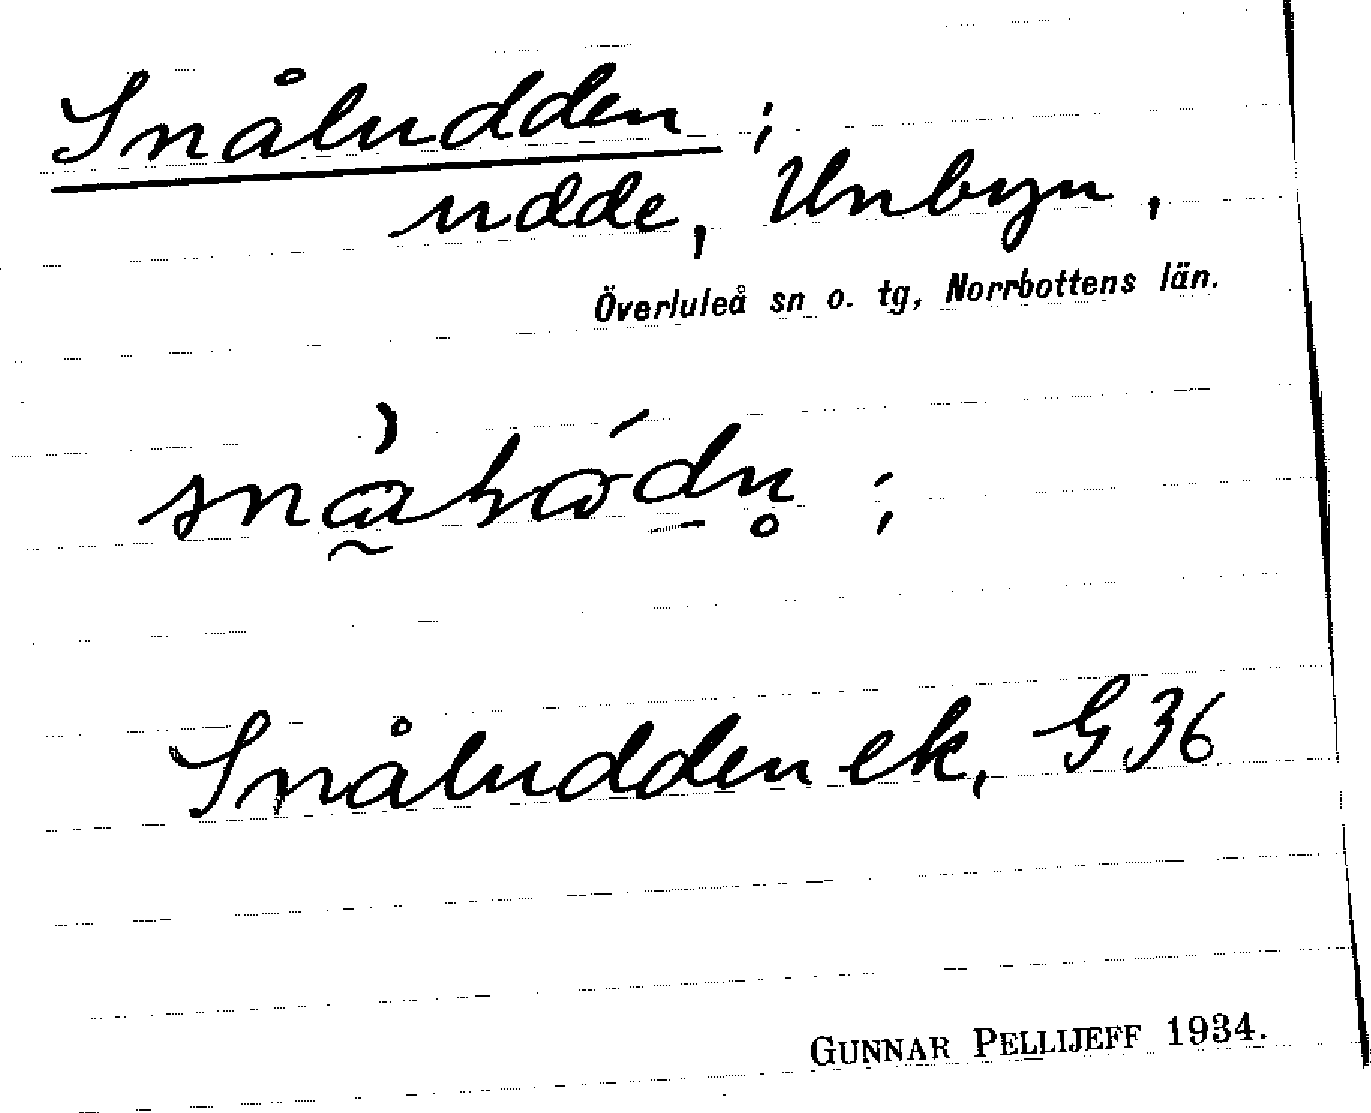 Snåludden ;
udde, Unbyn,
Överluleå sn o. tg, Norrbottens län.
Snåludden ek, G36
GUNNAR PELLIJEFF 1934.